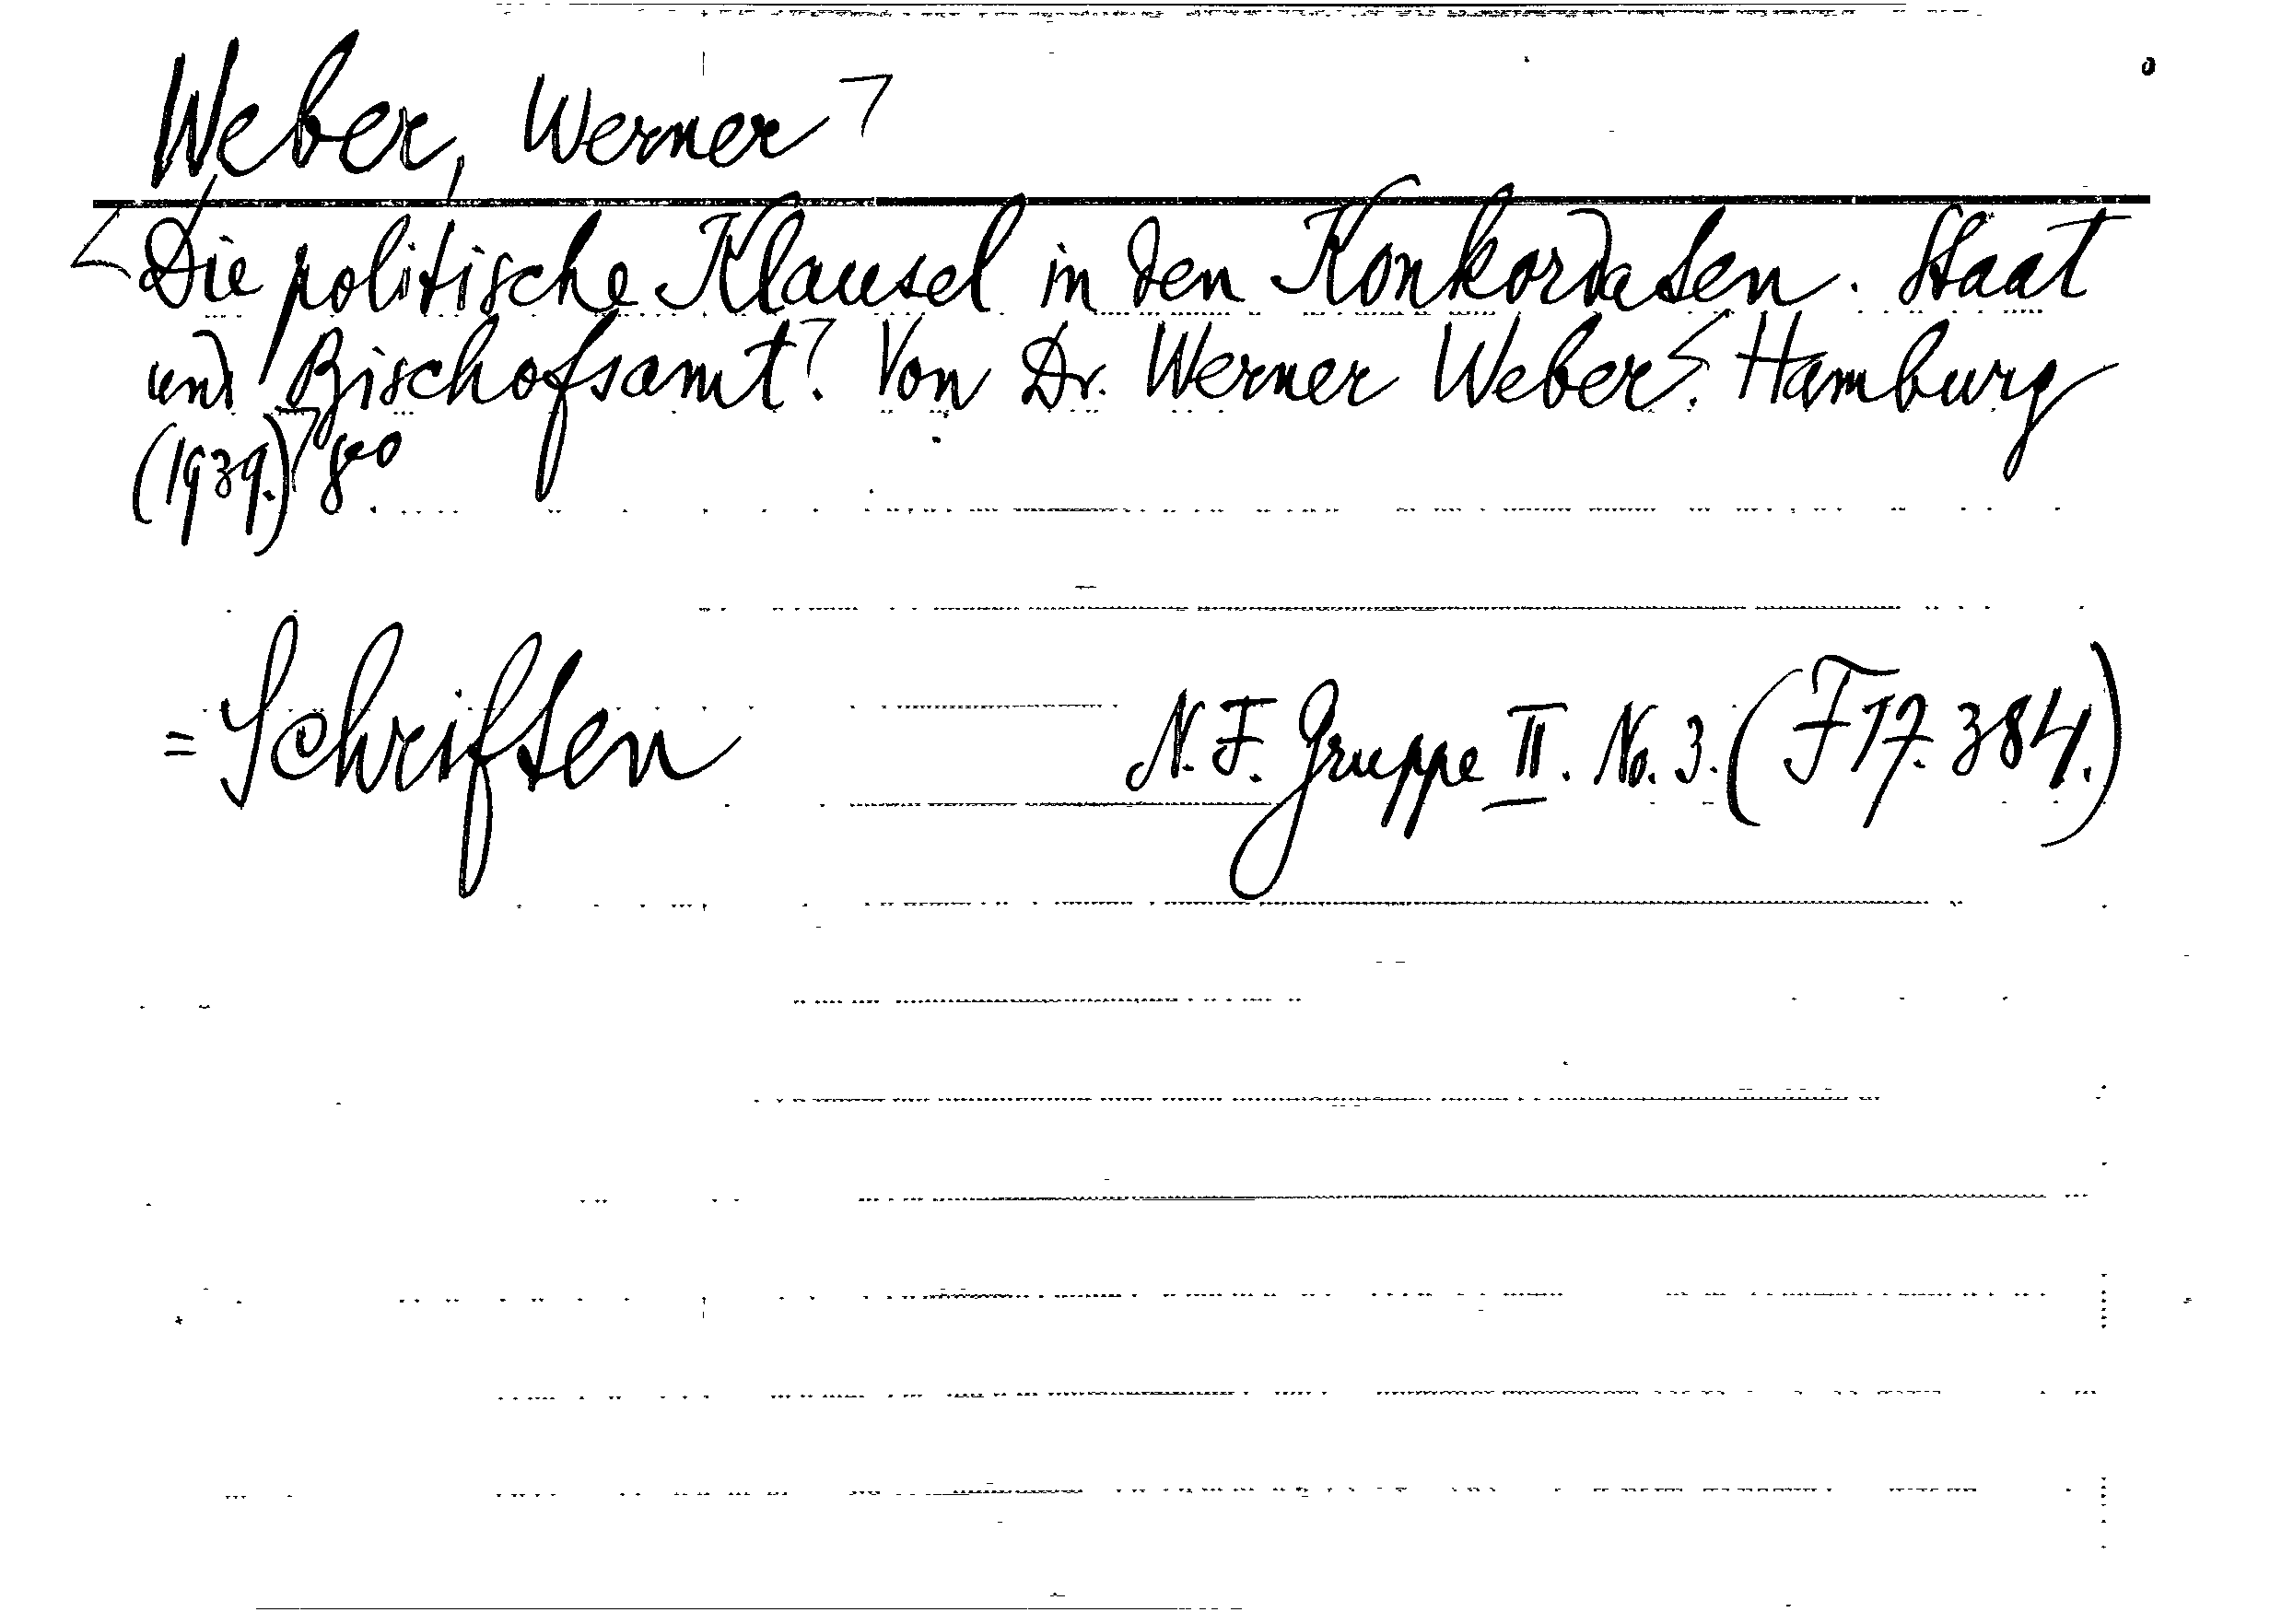 Weber, Werner
Die politische Klausel in den Konkordaten. Staat
und Bischofsamt. Von Dr. Werner Weber. Hamburg
(1939.) 8vo.
= Schriften N. F. Gruppe II. No. 3. (F 17. 384.)